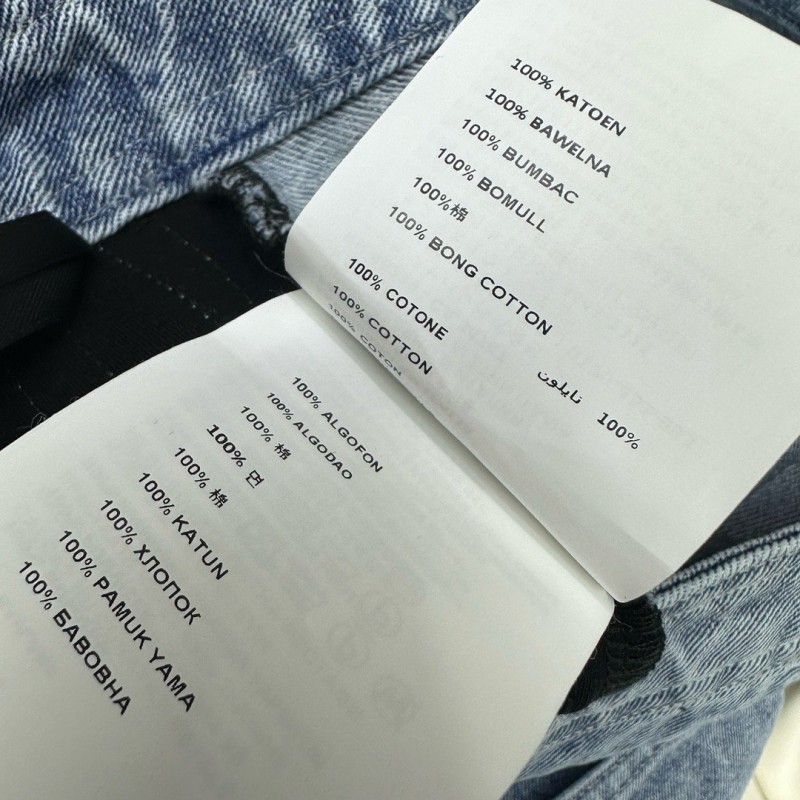 100% KATOEN
100% BAWEŁNA
100% BUMBAC
100% BOMULL
100%棉
100% BONG COTTON
100% COTONE
100% COTTON
100% COTON
100% نايلون
100% ALGOFON
100% ALGODAO
100% 棉
100% 면
100% 棉
100% KATUN
100% ХЛОПОК
100% PAMUK YAMA
100% БАВОВНА